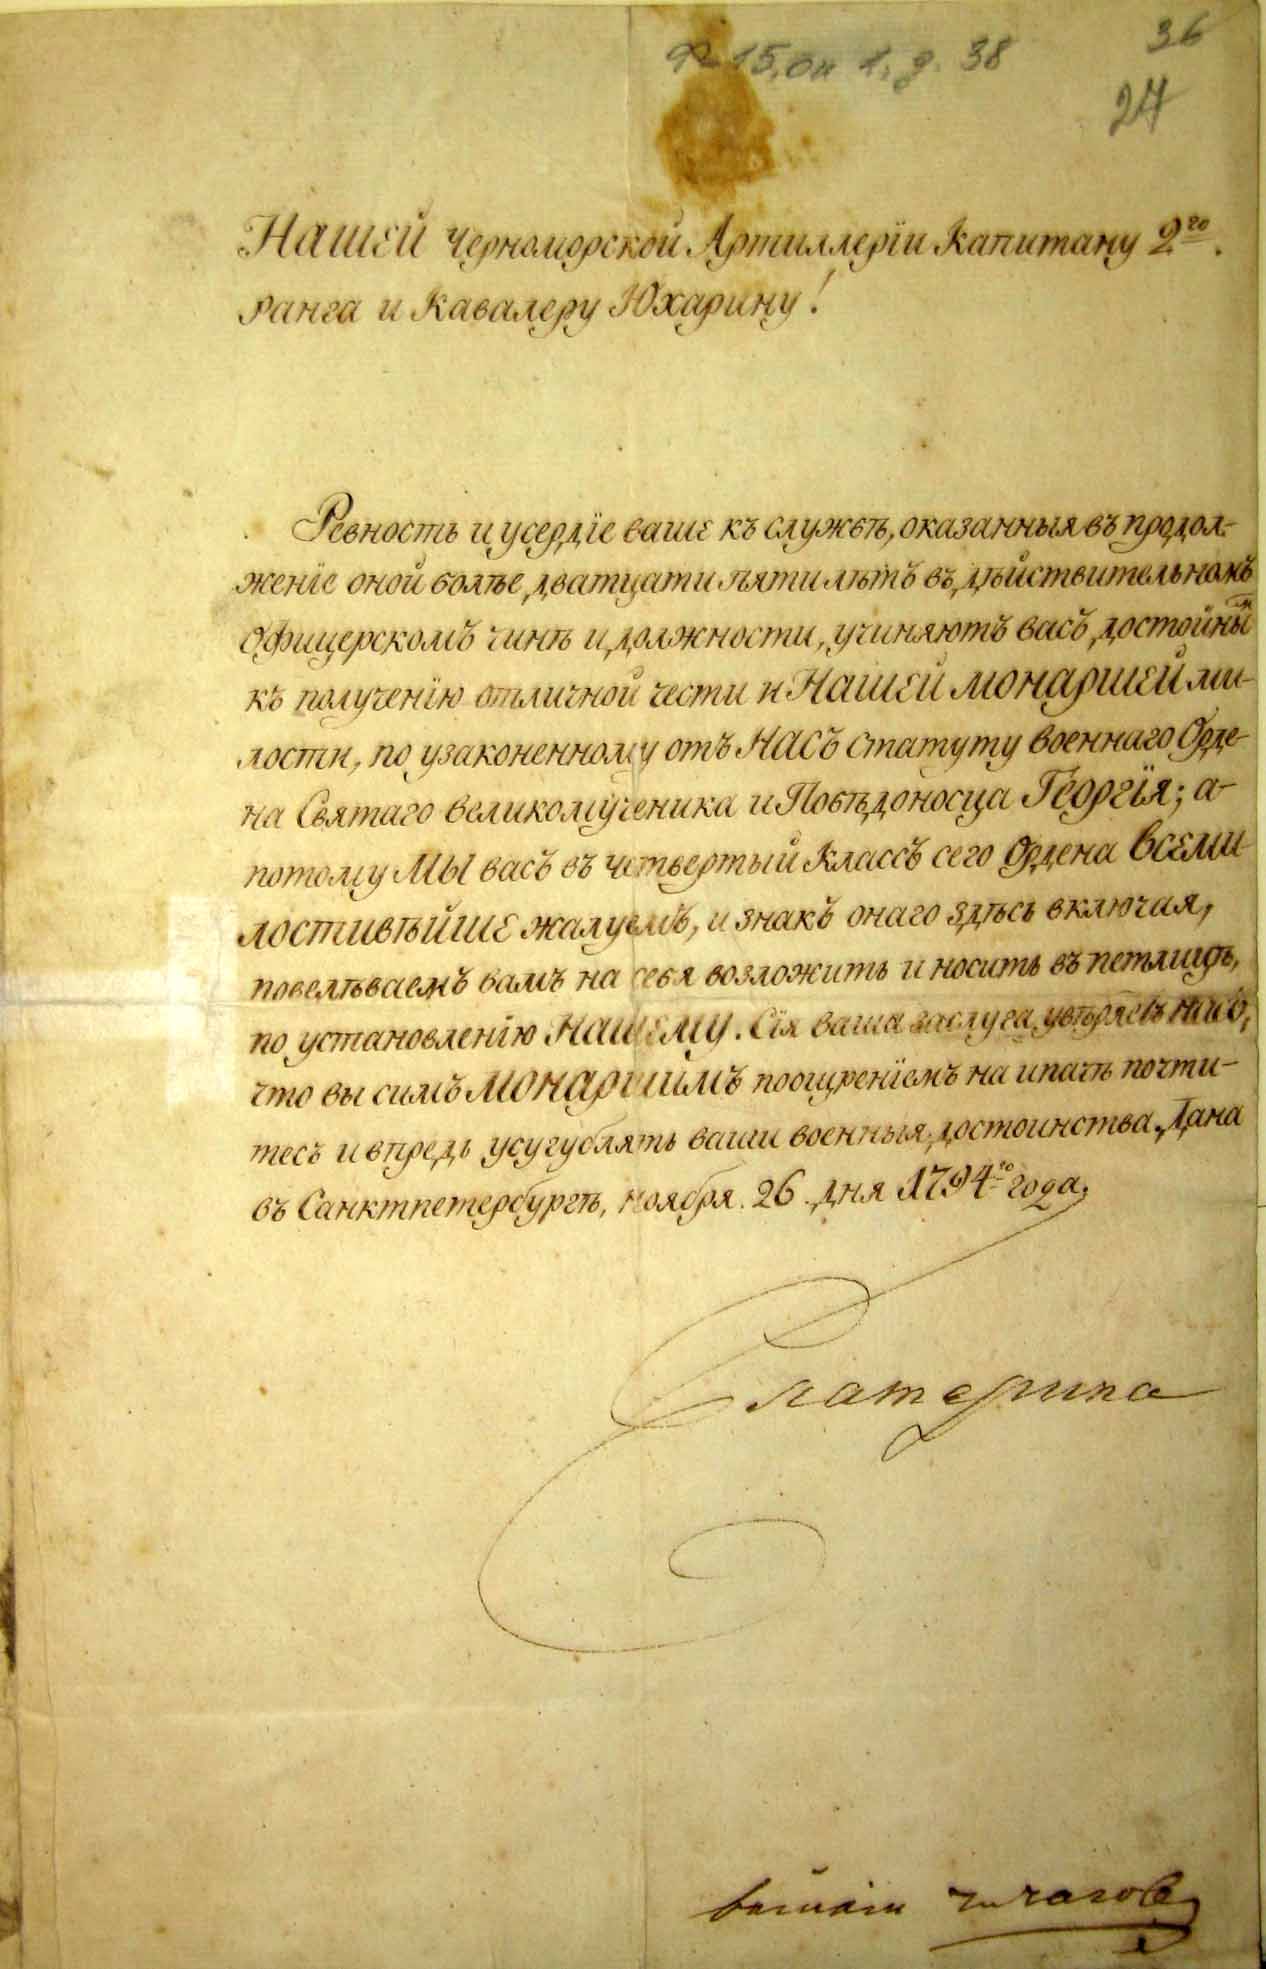 Ф 15, оп 1, д. 38
36
24
НАШЕЙ Черноморской Артиллерїи Капитану 2го.
ранга и Кавалеру Юхарину!
Ревность и усердїе ваше къ службѣ, оказанныя въ продол-
женїе оной болѣе дватцати пяти лѣтъ въ дѣйствительномъ
Офицерскомъ чинѣ и должности, учиняютъ васъ достойным
къ полученїю отличной чести и НАШЕЙ монаршей ми-
лости, по узаконенному отъ НАСЪ статуту военнаго Орде-
на Святаго великомученика и Побѣдоносца Георгїя; а-
потому МЫ васъ въ четвертый Классъ сего Ордена всеми
лостивѣйше жалуемъ, и знакъ онаго здѣсь включая,
повелѣваемъ вамъ на себя возложить и носить въ петлицѣ,
по установленїю НАШЕМУ. Сїя ваша заслуга увѣряетъ НАСЪ,
что вы симъ монаршимъ поощренїемъ на ипаче почти-
тесь и впредь усугублять ваши военныя достоинства. Дана
въ Санктпетербургѣ, ноября. 26. дня 1794го года.
Екатерина
василиі Чичагов